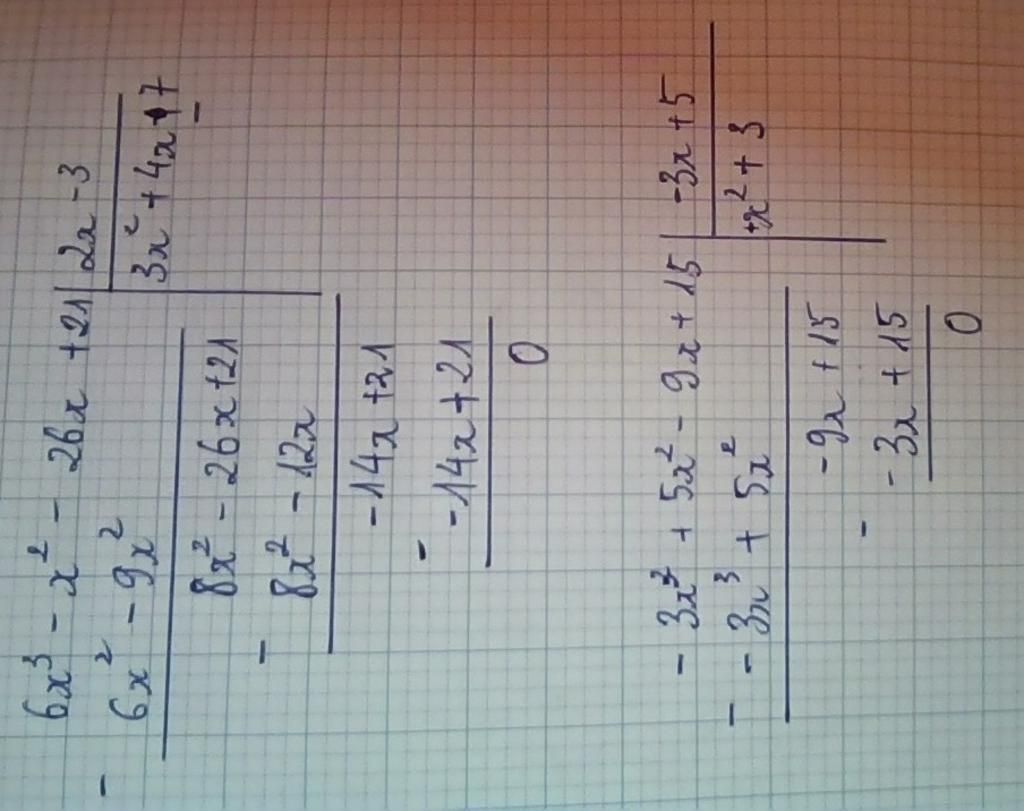 6x³ - x² - 26x + 21 | 2x - 3
- 6x² - 9x² | 3x² + 4x - 7
8x² - 26x + 21
- 8x² - 12x
-14x + 21
- -14x + 21
0
- 3x³ + 5x² - 9x + 15 | -3x + 5
- - 3x³ + 5x² | +x² + 3
-9x + 15
- - 3x + 15
0